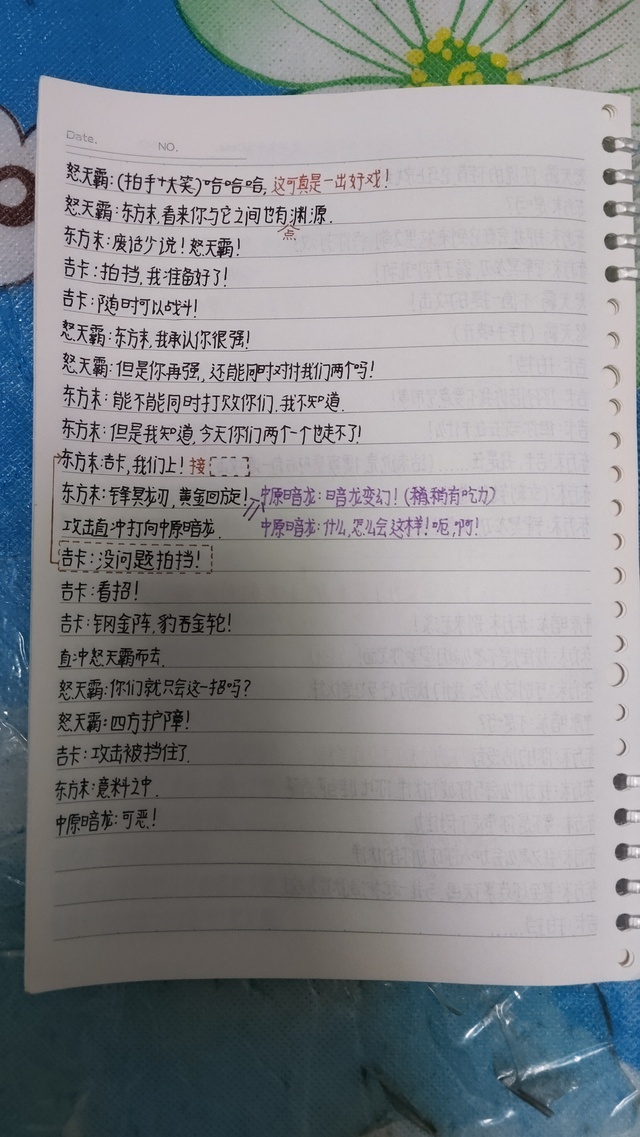 Date.
NO.
怒天霸:(拍手+大笑)哈哈哈,这可真是一出好戏!
怒天霸:东方末,看来你与它之间也有点渊源.
东方末:废话少说!怒天霸!
吉卡:拍挡,我准备好了!
吉卡:随时可以战斗!
怒天霸:东方末,我承认你很强!
怒天霸:但是你再强,还能同时对付我们两个吗!
东方末:能不能同时打败你们,我不知道.
东方末:但是我知道,今天你们两个一个也走不了!
东方末:吉卡,我们上!接
东方末:锋冥龙刃,黄金回旋! 中原暗龙:暗龙变幻!(稍稍有吃力)
攻击直冲打向中原暗龙. 中原暗龙:什么,怎么会这样!呃,啊!
吉卡:没问题拍挡!
吉卡:看招!
吉卡:钢金阵,豹吞金轮!
直冲怒天霸而去.
怒天霸:你们就只会这一招吗?
怒天霸:四方护障!
吉卡:攻击被挡住了.
东方末:意料之中.
中原暗龙:可恶!